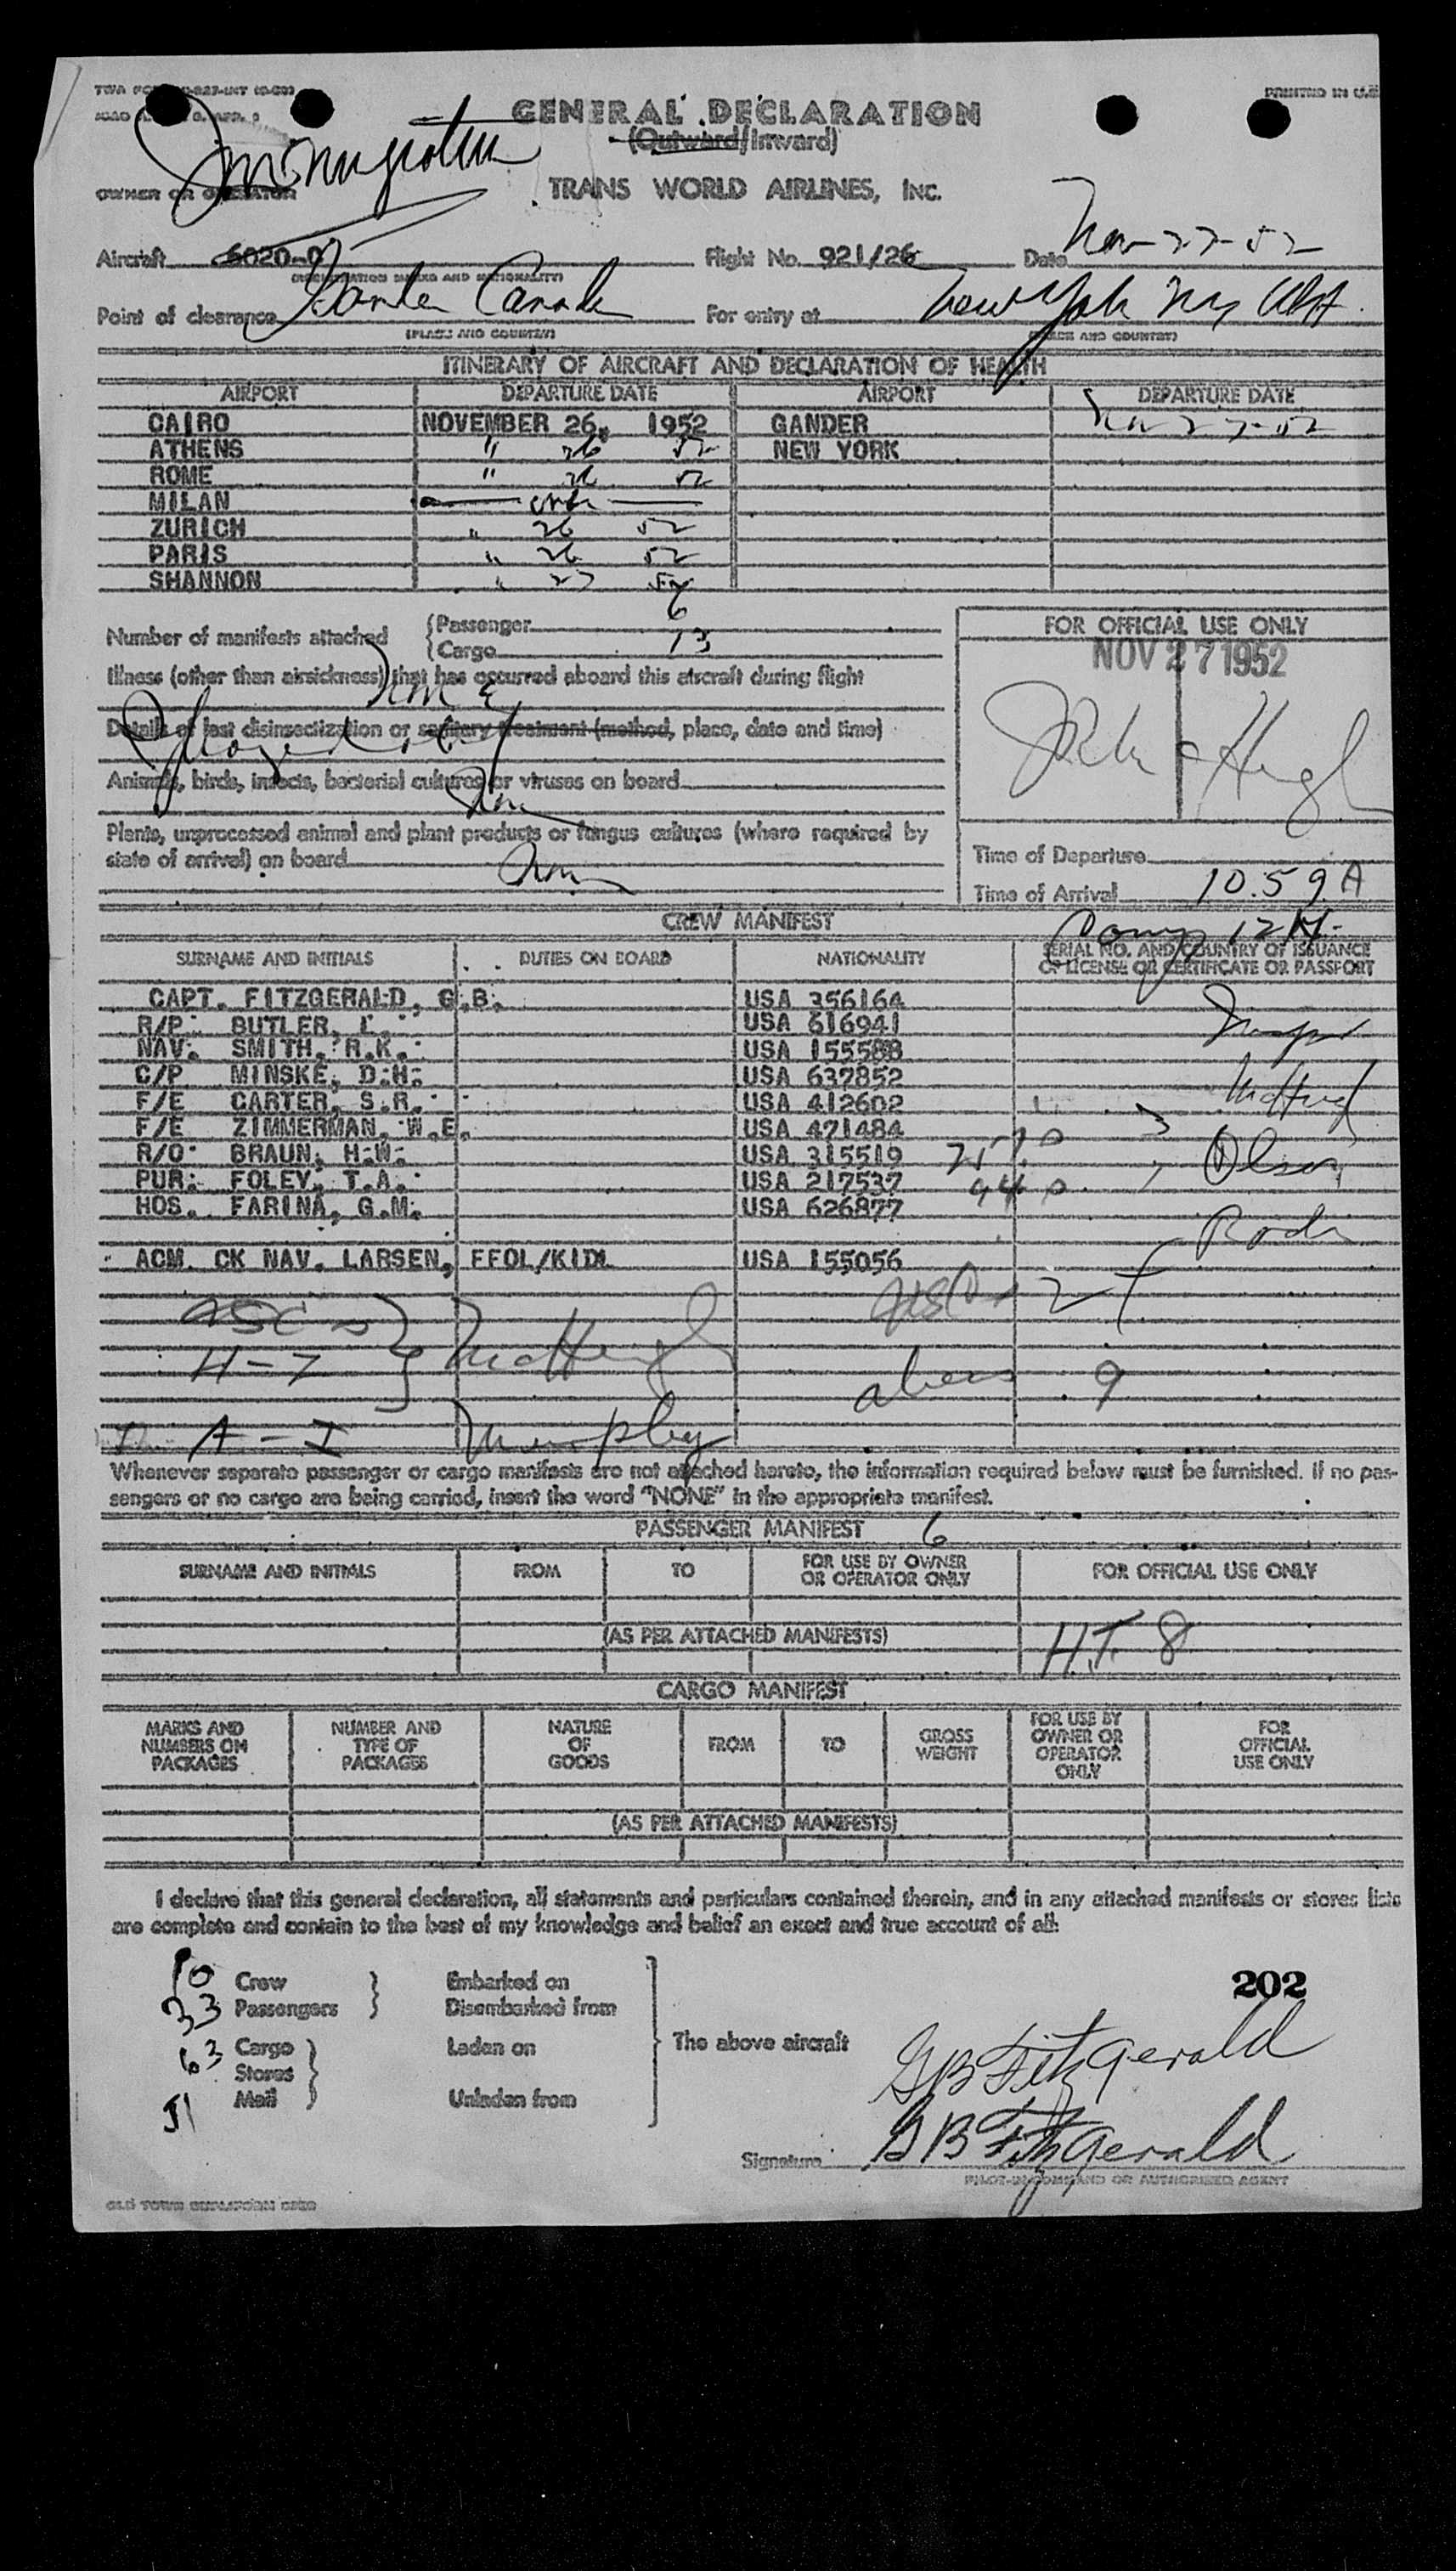 PRINTED IN U.S.
GENERAL DECLARATION
(Outward/Inward)
OWNER OR OPERATOR TRANS WORLD AIRLINES, INC.
Aircraft 6020-C Flight No. 921/26 Date Nov-27-52
(REGISTRATION MARKS AND NATIONALITY)
Point of clearance Gander Canada For entry at New York NY USA
(PLACE AND COUNTRY) (PLACE AND COUNTRY)
ITINERARY OF AIRCRAFT AND DECLARATION OF HEALTH
AIRPORT DEPARTURE DATE AIRPORT DEPARTURE DATE
CAIRO NOVEMBER 26, 1952 GANDER Nov 27-52
ATHENS " 26 52 NEW YORK
ROME " 26 52
MILAN
ZURICH " 26 52
PARIS " 26 52
SHANNON " 27 52
Number of manifests attached { Passenger 6
{ Cargo 13
FOR OFFICIAL USE ONLY
NOV 27 1952
Illness (other than airsickness) that has occurred aboard this aircraft during flight
None
Details of last disinsectization or sanitary treatment (method, place, date and time)
Animals, birds, insects, bacterial cultures or viruses on board
Plants, unprocessed animal and plant products or fungus cultures (where required by
state of arrival) on board
Time of Departure
Time of Arrival 10.59 A
CREW MANIFEST
Comp 12 M.
SURNAME AND INITIALS DUTIES ON BOARD NATIONALITY SERIAL NO. AND COUNTRY OF ISSUANCE
OF LICENSE OR CERTIFICATE OR PASSPORT
CAPT. FITZGERALD, G.B. USA 356164
R/P. BUTLER, L. USA 616941
NAV. SMITH, R.K. USA 155588
C/P MINSKE, D.H. USA 637852
F/E CARTER, S.R. USA 412602
F/E ZIMMERMAN, W.E. USA 471484
R/O BRAUN, H.W. USA 315519
PUR. FOLEY, T.A. USA 217537
Olson
HOS. FARINA, G.M. USA 626877
ACM. CK NAV. LARSEN, FFOL/KIDL USA 155056
USC 24
H-7
aliens 9
A-I Murphy
Whenever separate passenger or cargo manifests are not attached hereto, the information required below must be furnished. If no pas-
sengers or no cargo are being carried, insert the word "NONE" in the appropriate manifest.
PASSENGER MANIFEST 6
SURNAME AND INITIALS FROM TO FOR USE BY OWNER OR OPERATOR ONLY FOR OFFICIAL USE ONLY
(AS PER ATTACHED MANIFESTS) H.T. 8
CARGO MANIFEST
MARKS AND NUMBERS ON PACKAGES NUMBER AND TYPE OF PACKAGES NATURE OF GOODS FROM TO GROSS WEIGHT FOR USE BY OWNER OR OPERATOR ONLY FOR OFFICIAL USE ONLY
(AS PER ATTACHED MANIFESTS)
I declare that this general declaration, all statements and particulars contained therein, and in any attached manifests or stores lists
are complete and contain to the best of my knowledge and belief an exact and true account of all:
10 Crew Embarked on
33 Passengers Disembarked from
63 Cargo Laden on
Stores
51 Mail Unladen from
The above aircraft
202
GB Fitzgerald
Signature GB Fitzgerald
PILOT-IN-COMMAND OR AUTHORIZED AGENT